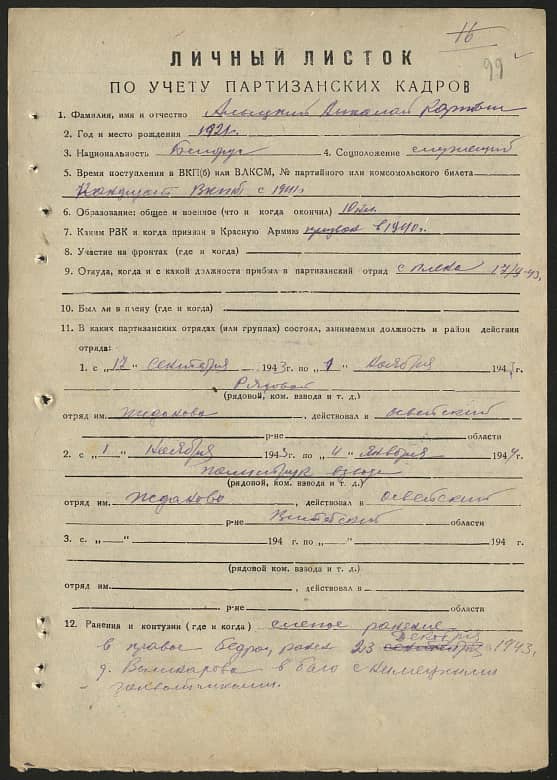 16
99
ЛИЧНЫЙ ЛИСТОК
ПО УЧЕТУ ПАРТИЗАНСКИХ КАДРОВ
1. Фамилия, имя и отчество Николай
2. Год и место рождения 1921г.
3. Национальность 4. Соцположение служащий
5. Время поступления в ВКП(б) или ВЛКСМ, № партийного или комсомольского билета
Кандидат ВКПб с 1941г.
6. Образование: общее и военное (что и когда окончил) 10 кл.
7. Каким РВК и когда призван в Красную Армию призван в 1940г.
8. Участие на фронтах (где и когда)
9. Откуда, когда и с какой должности прибыл в партизанский отряд с плена 17/9-43,
10. Был ли в плену (где и когда)
11. В каких партизанских отрядах (или группах) состоял, занимаемая должность и район действия
отряда:
1. с „17" сентября 1943г. по „1" ноября 194 г.
Рядовой
(рядовой, ком. взвода и т. д.)
отряд им. Жданова, действовал в Освейский
р-не области
2. с „1" ноября 1943г. по „4" января 1944г.
взвода
(рядовой, ком. взвода и т. д.)
отряд им. Жданова, действовал в Освейский
р-не Витебский области
3. с „ " 194 г. по „ " 194 г.
(рядовой, ком. взвода и т. д.)
отряд им. , действовал в
р-не области
12. Ранения и контузии (где и когда) слепое ранение
в правое бедро, ранен 23 декабря 1943,
д. в бою с немецкими